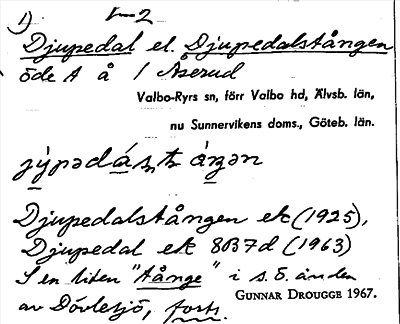 1) 1–2
Djupedal el. Djupedalstången
öde t å 1 Åserud
Valbo-Ryrs sn, förr Valbo hd, Älvsb. län,
nu Sunnervikens doms., Göteb. län.
Djupedalstången ek (1925),
Djupedal ek 8037d (1963)
I en liten "tånge" i s. ö. änden
av Dövlesjö, forts.
GUNNAR DROUGGE 1967.